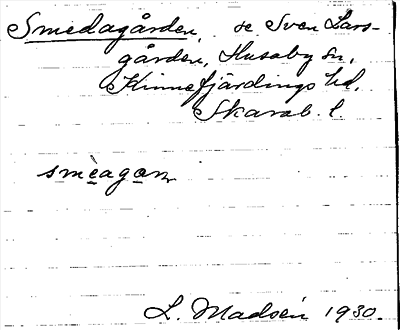 Smedagården, se Sven Lars-
gården, Husaby sn,
Kinnefjärdings hd,
Skarab. l.
smèagαn
L. Madsén 1930.